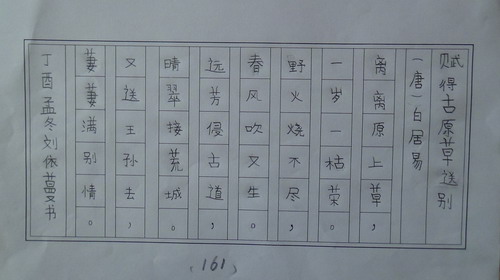 赋得古原草送别
（唐）白居易
离离原上草，
一岁一枯荣。
野火烧不尽，
春风吹又生。
远芳侵古道，
晴翠接荒城。
又送王孙去，
萋萋满别情。
丁酉孟冬刘依蔓书
（161）